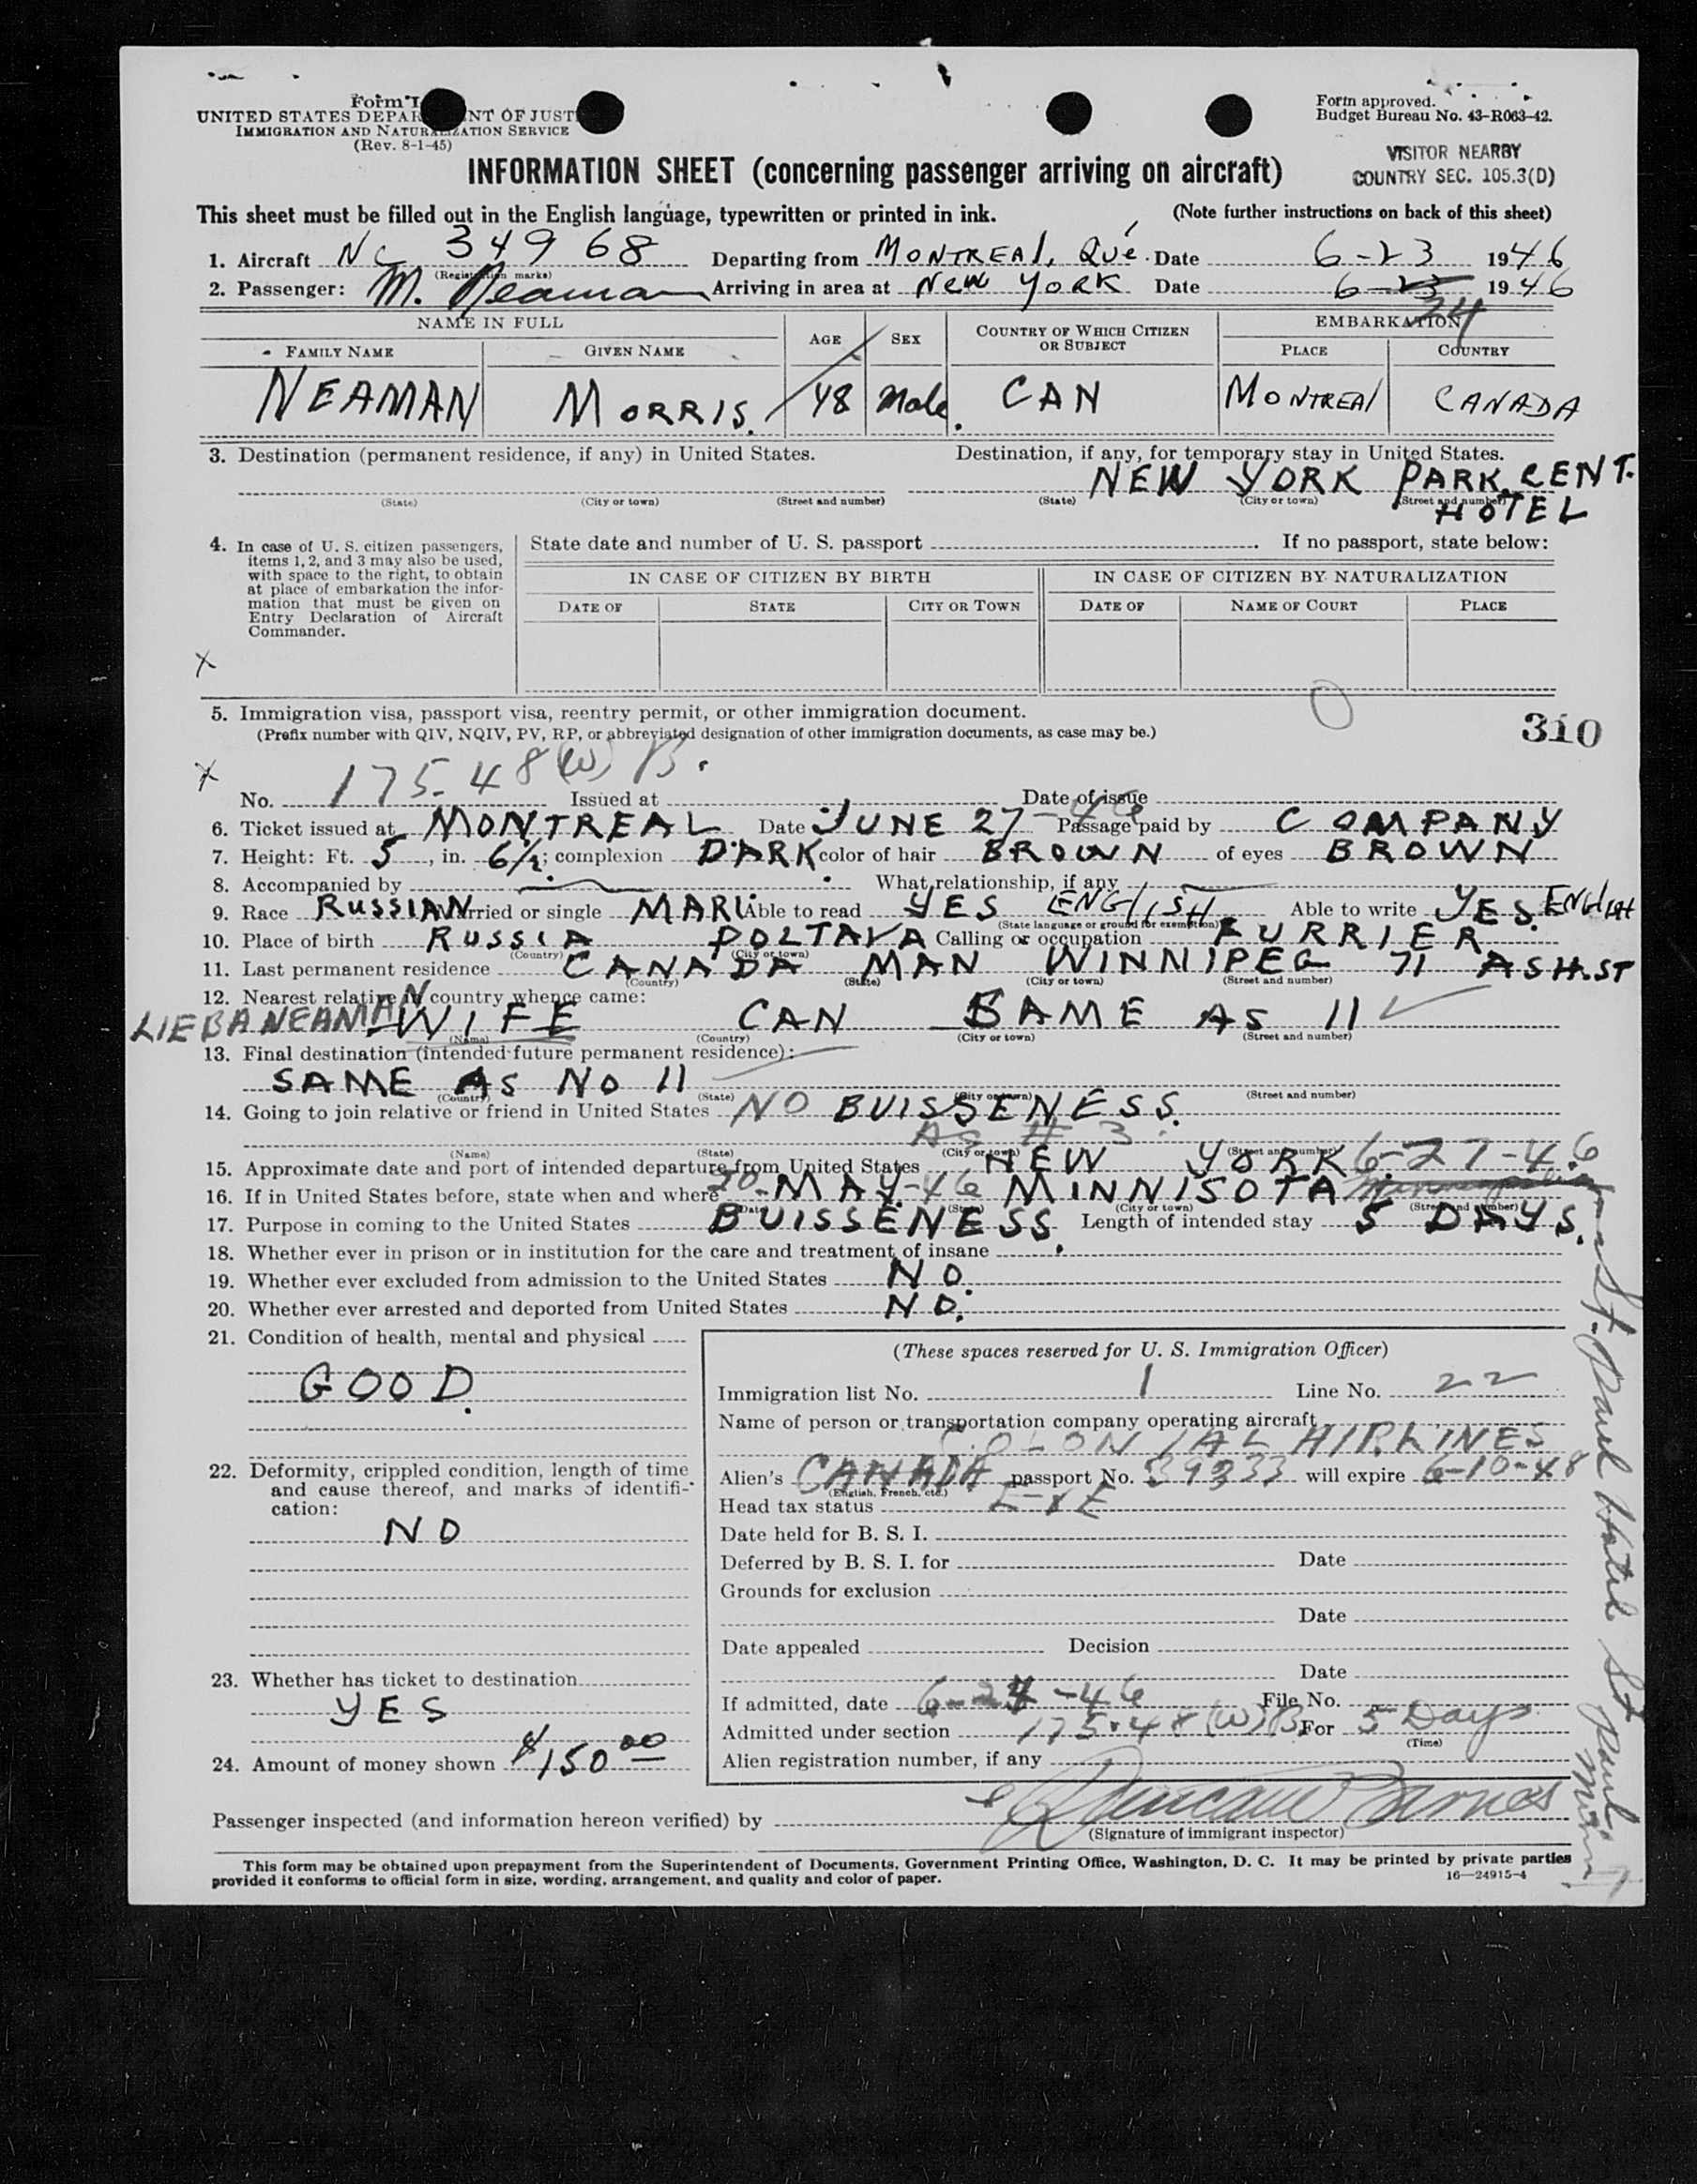 Form I
UNITED STATES DEPAR NT OF JUST
IMMIGRATION AND NATURALIZATION SERVICE
(Rev. 8-1-45)
Form approved.
Budget Bureau No. 43-R063-42.
VISITOR NEARBY
COUNTRY SEC. 105.3(D)
INFORMATION SHEET (concerning passenger arriving on aircraft)
This sheet must be filled out in the English language, typewritten or printed in ink. (Note further instructions on back of this sheet)
1. Aircraft NC 34968 Departing from MONTREAL, QUé. Date 6-23 1946
(Registration marks)
2. Passenger: M. Neaman Arriving in area at NEW YORK Date 6-23 24 1946
NAME IN FULL AGE SEX COUNTRY OF WHICH CITIZEN OR SUBJECT EMBARKATION
FAMILY NAME GIVEN NAME PLACE COUNTRY
NEAMAN MORRIS. 48 Male. CAN MONTREAL CANADA
3. Destination (permanent residence, if any) in United States. Destination, if any, for temporary stay in United States.
NEW YORK PARK CENT. HOTEL
(State) (City or town) (Street and number) (State) (City or town) (Street and number)
4. In case of U. S. citizen passengers, items 1, 2, and 3 may also be used, with space to the right, to obtain at place of embarkation the information that must be given on Entry Declaration of Aircraft Commander.
State date and number of U. S. passport . If no passport, state below:
IN CASE OF CITIZEN BY BIRTH IN CASE OF CITIZEN BY NATURALIZATION
DATE OF STATE CITY OR TOWN DATE OF NAME OF COURT PLACE
X
5. Immigration visa, passport visa, reentry permit, or other immigration document. 310
(Prefix number with QIV, NQIV, PV, RP, or abbreviated designation of other immigration documents, as case may be.)
X
No. 175.48(w) B. Issued at Date of issue
6. Ticket issued at MONTREAL Date JUNE 27-46 Passage paid by COMPANY
7. Height: Ft. 5, in. 6½; complexion DARK color of hair BROWN of eyes BROWN
8. Accompanied by — What relationship, if any —
9. Race RUSSIAN Married or single MARI Able to read YES ENGLISH Able to write YES. ENGLISH
(State language or ground for exemption)
10. Place of birth RUSSIA POLTAVA Calling or occupation FURRIER
(Country) (City or town)
11. Last permanent residence CANADA MAN WINNIPEG 71 ASH. ST
(Country) (State) (City or town) (Street and number)
12. Nearest relative in country whence came:
LIEBA NEAMAN WIFE CAN SAME AS 11
(Name) (Country) (City or town) (Street and number)
13. Final destination (intended future permanent residence):
SAME AS NO 11
(Country) (State) (City or town) (Street and number)
14. Going to join relative or friend in United States NO BUISSENESS.
AS # 3.
(Name) (State) (City or town) (Street and number)
15. Approximate date and port of intended departure from United States NEW YORK 6-27-46
16. If in United States before, state when and where 20-MAY-46 MINNISOTA
(Date) (State) (City or town) (Street and number)
St. Paul Hotel St Paul Minn
17. Purpose in coming to the United States BUISSENESS Length of intended stay 5 DAYS.
18. Whether ever in prison or in institution for the care and treatment of insane
19. Whether ever excluded from admission to the United States NO.
20. Whether ever arrested and deported from United States NO.
21. Condition of health, mental and physical
GOOD.
22. Deformity, crippled condition, length of time and cause thereof, and marks of identification:
NO
23. Whether has ticket to destination
YES
24. Amount of money shown $150 00
(These spaces reserved for U. S. Immigration Officer)
Immigration list No. 1 Line No. 22
Name of person or transportation company operating aircraft
COLONIAL AIRLINES
Alien's CANADA passport No. 39233 will expire 6-10-48
(English, French, etc.)
Head tax status EXE
Date held for B. S. I.
Deferred by B. S. I. for Date
Grounds for exclusion
Date
Date appealed Decision
Date
If admitted, date 6-24-46 File No.
Admitted under section 175.48(W)B For 5 Days
(Time)
Alien registration number, if any
Passenger inspected (and information hereon verified) by Duncan Barnes
(Signature of immigrant inspector)
This form may be obtained upon prepayment from the Superintendent of Documents, Government Printing Office, Washington, D. C. It may be printed by private parties
provided it conforms to official form in size, wording, arrangement, and quality and color of paper. 16—24915-4